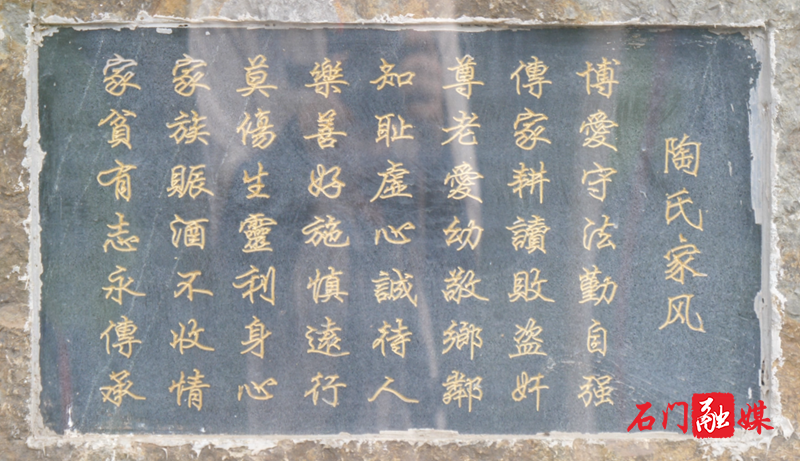 陶氏家风
博愛守法勤自强
傳家耕讀敗盗奸
尊老愛幼敬鄉鄰
知耻虚心誠待人
樂善好施慎遠行
莫傷生靈利身心
家族賑酒不收情
家貧有志永傳承
石门融媒